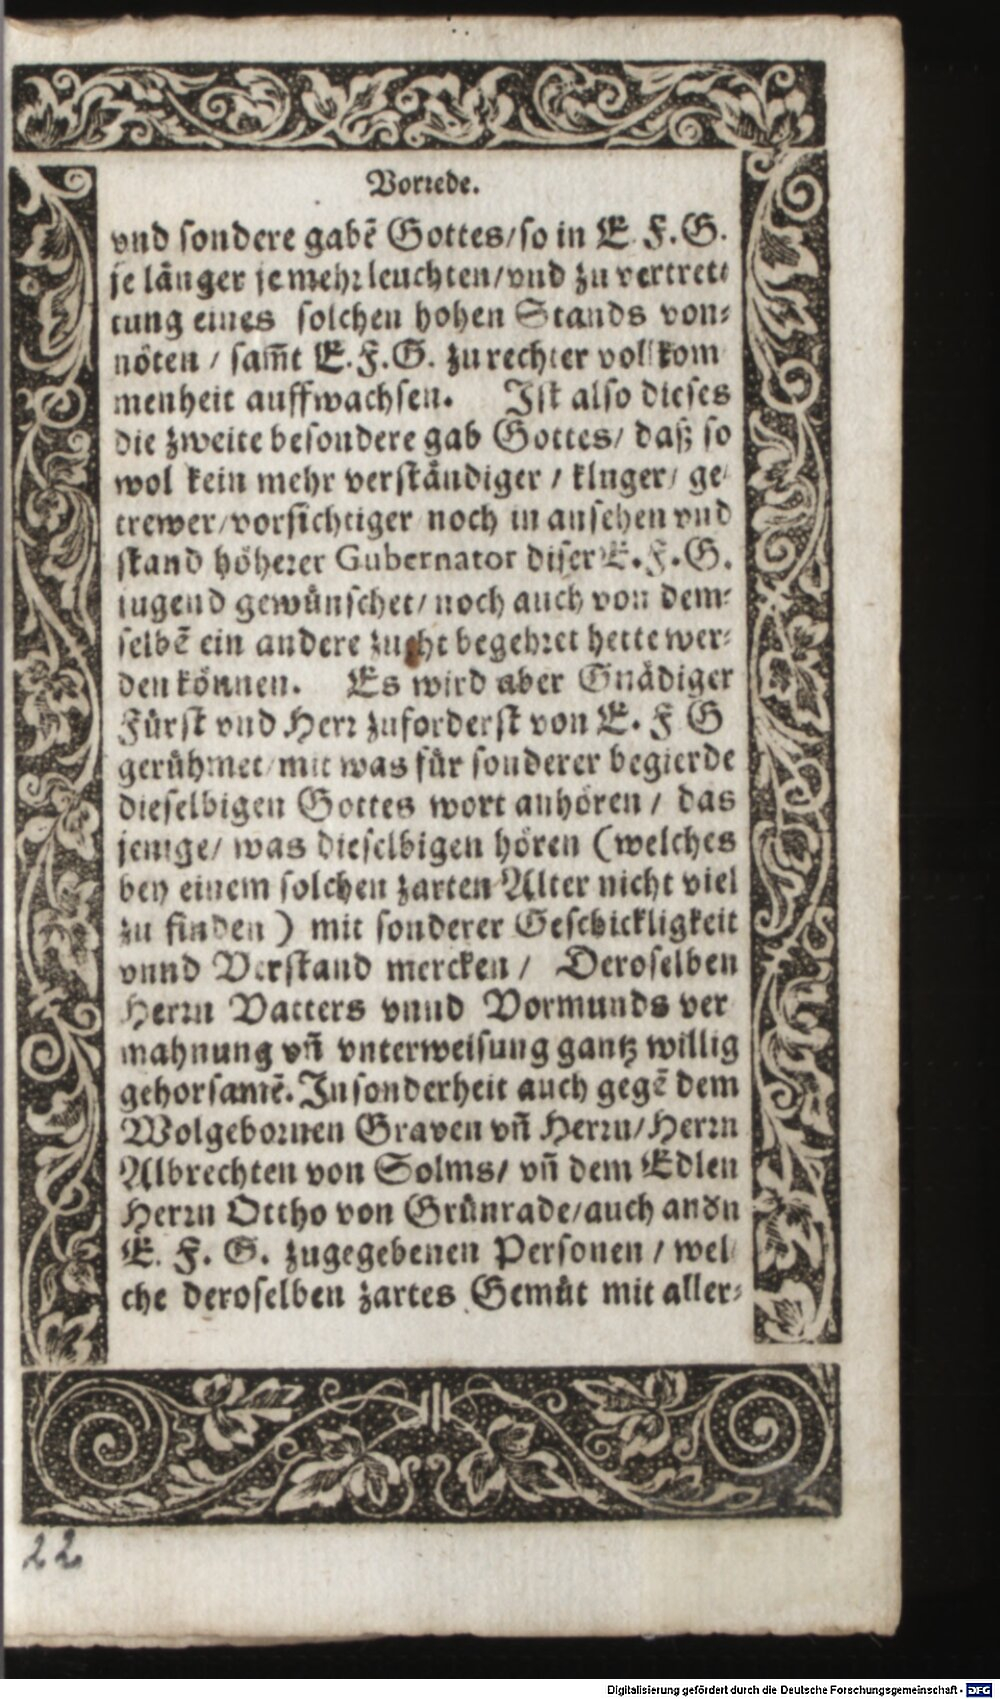 Vorrede.
vnd sondere gabẽ Gottes/so in E. F. G.
je länger je mehr leuchten/vnd zu vertret⸗
tung eines solchen hohen Stands von⸗
nöten / sam̃t E. F. G. zu rechter vollkom
menheit auffwachsen. Ist also dieses
die zweite besondere gab Gottes/ daß so
wol kein mehr verständiger / kluger/ ge⸗
trewer/vorsichtiger noch in ansehen vnd
stand höherer Gubernator diser E. F. G.
iugend gewünschet/ noch auch von dem⸗
selbẽ ein andere zucht begehret hette wer⸗
den können. Es wird aber Gnädiger
Fürst vnd Herr zuforderst von E. F G
gerühmet/mit was für sonderer begierde
dieselbigen Gottes wort anhören / das
jenige/ was dieselbigen hören (welches
bey einem solchen zarten Alter nicht viel
zu finden ) mit sonderer Geschickligkeit
vnnd Verstand mercken / Deroselben
Herrn Vatters vnnd Vormunds ver
mahnung vñ vnterweisung gantz willig
gehorsamẽ. Insonderheit auch gegẽ dem
Wolgebornen Graven vñ Herrn/Herrn
Albrechten von Solms/ vñ dem Edlen
Herrn Ottho von Grünrade/auch andn
E. F. G. zugegebenen Personen / wel
che deroselben zartes Gemüt mit aller⸗
22
Digitalisierung gefördert durch die Deutsche Forschungsgemeinschaft - DFG